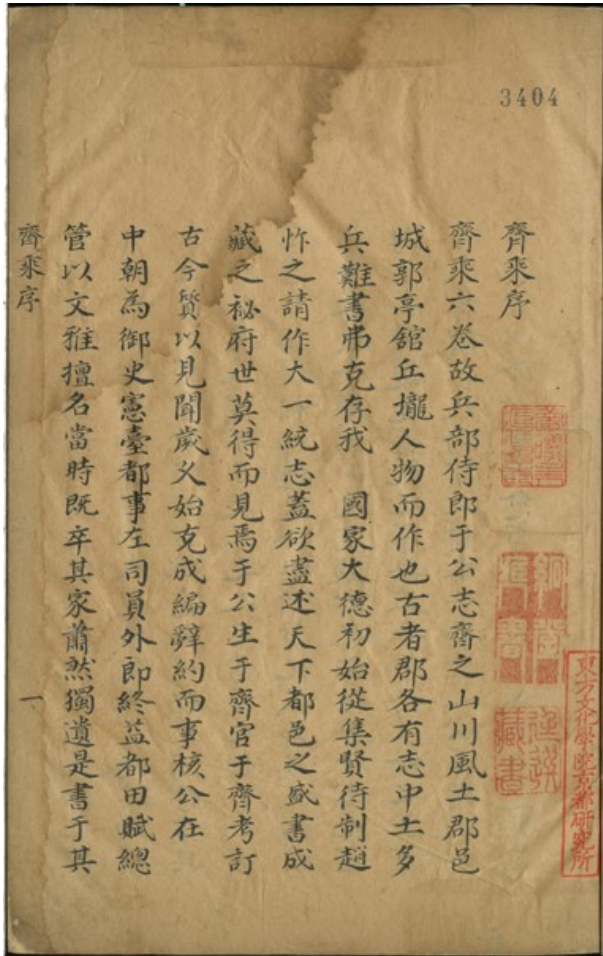 3404
齊乘序
齊乘六卷故兵部侍郎于公志齊之山川風土郡邑
城郭亭館丘壠人物而作也古者郡各有志中土多
兵難書弗克存我　國家大德初始從集賢待制趙
忤之請作大一統志蓋欲盡述天下都邑之盛書成
藏之祕府世莫得而見焉于公生于齊官于齊考訂
古今質以見聞歲久始克成編辭約而事核公在
中朝為御史憲臺都事左司員外郎終益都田賦總
管以文雅擅名當時既卒其家蕭然獨遺是書于其
齊乘序
一
東方文化學院京都研究所